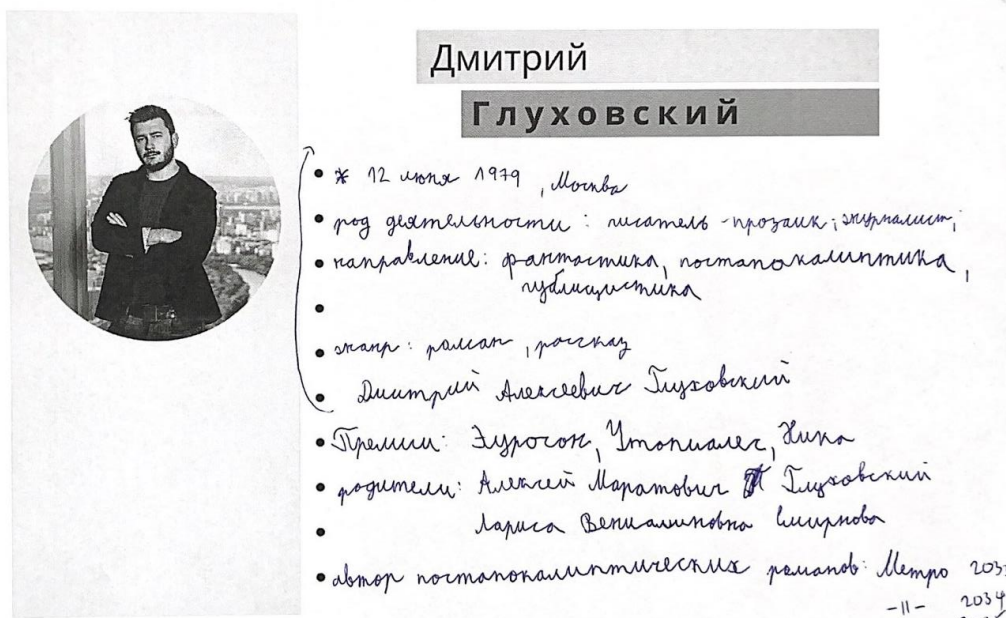 Дмитрий
Глуховский
* 12 июня 1979, Москва
род деятельности: писатель-прозаик; журналист;
направление: фантастика, постапокалиптика,
публицистика
жанр: роман, рассказ
Дмитрий Алексеевич Глуховский
Премии: Эурокон, Утопиалес, Ника
родители: Алексей Маратович Глуховский
Лариса Вениаминовна Смирнова
автор постапокалиптических романов: Метро
-11- 2034